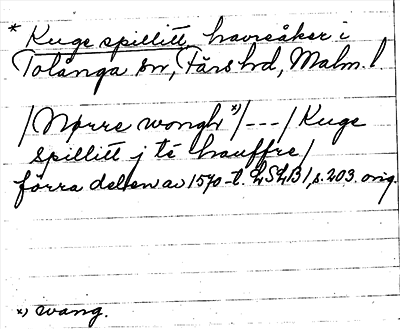 * Kuge spillitt, havreåker i
Tolånga sn, Färs hd, Malm. l.
/Nørre wongh *)/---/Kuge
spillitt j té hauffre/
förra delen av 1570-t. LSLB 1, s. 203. orig.
*) wang.